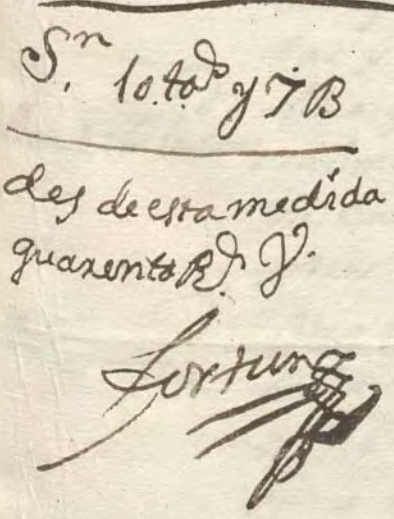 S.n 10. tad.s y 7 B
des de esta medida
quarenta R.s V.
Fortun